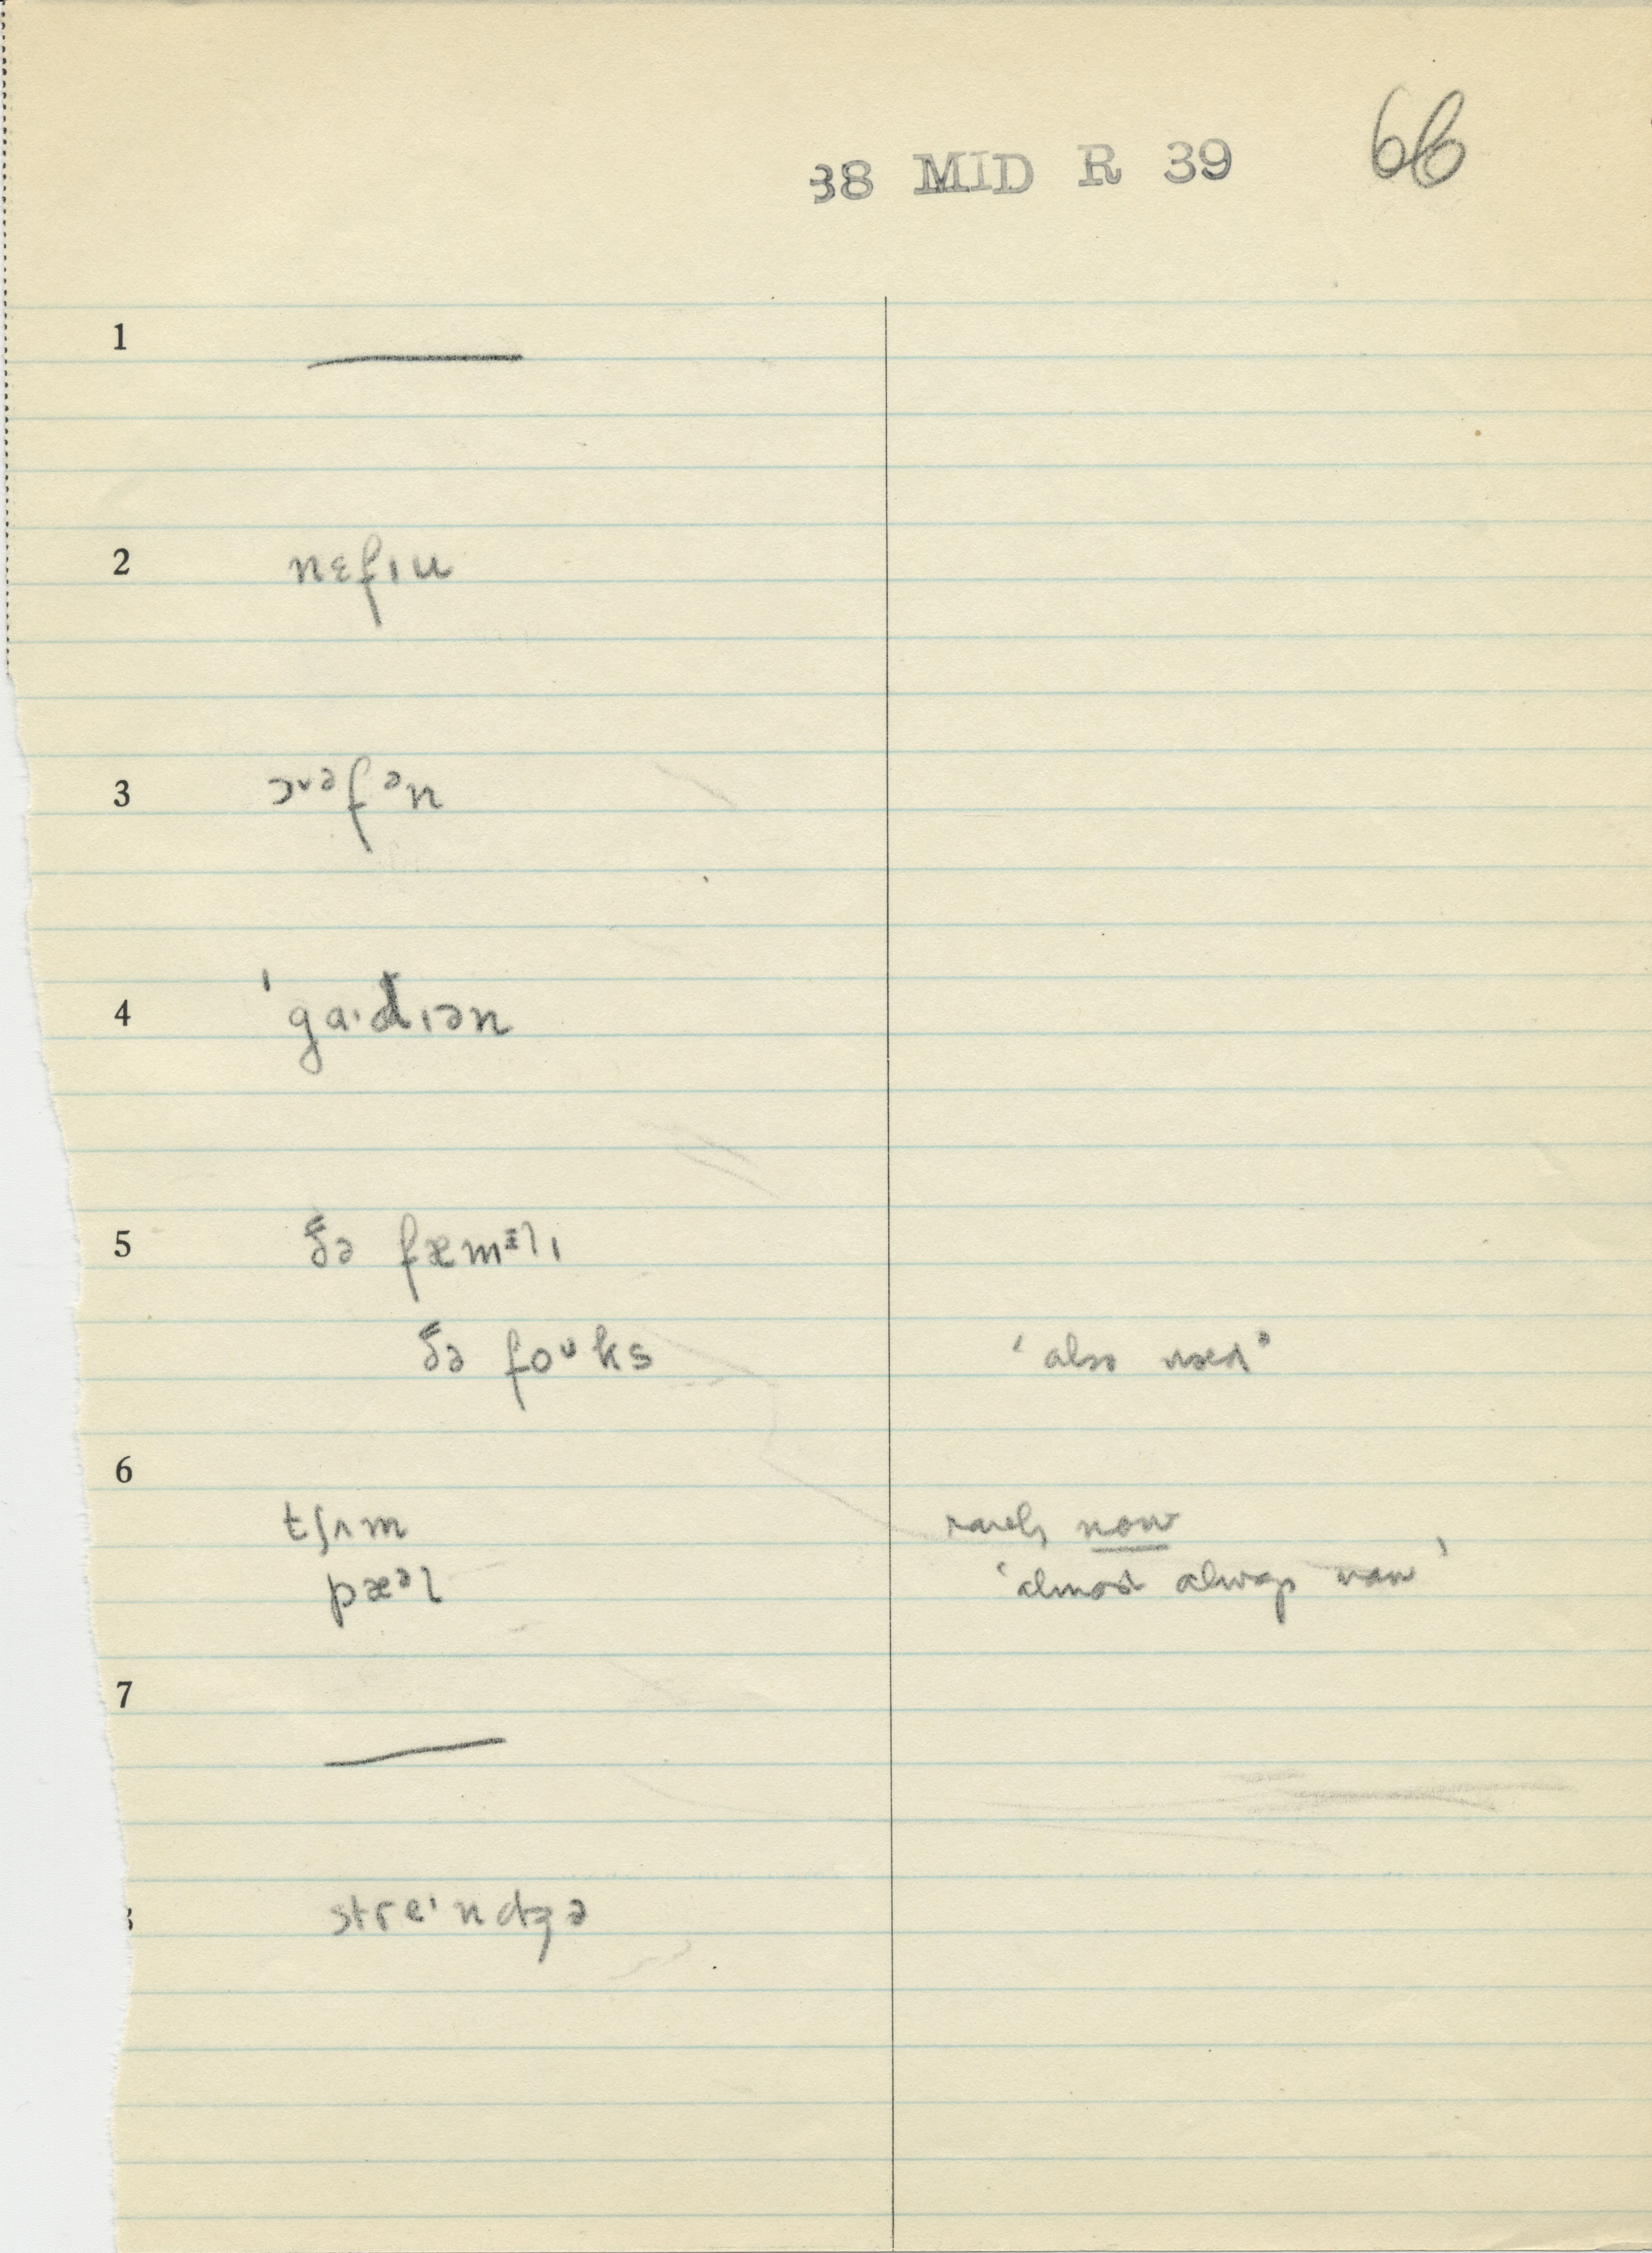 38 MID R 39 66
1 ———
2 nɛfɪu
3 ɔᵛᵊfᵊn
4 ˈgaˑdɪən
5 ðə fæmᵻlɪ
ðə foᶷks ‘also used’
6
tʃʌm rarely now
pæᵊl ‘almost always now’
7 ———
8 streᶦndʒə